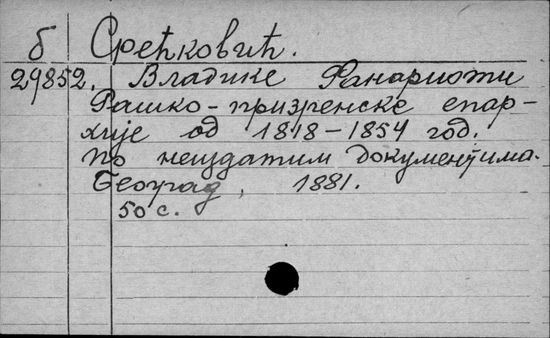 б Срећковић.
29852. Владике Фанариоти
Рашко-призренске епар-
хије од 1818-1854 год.
По неиздатим документима.
Београд, 1881.
50 с.